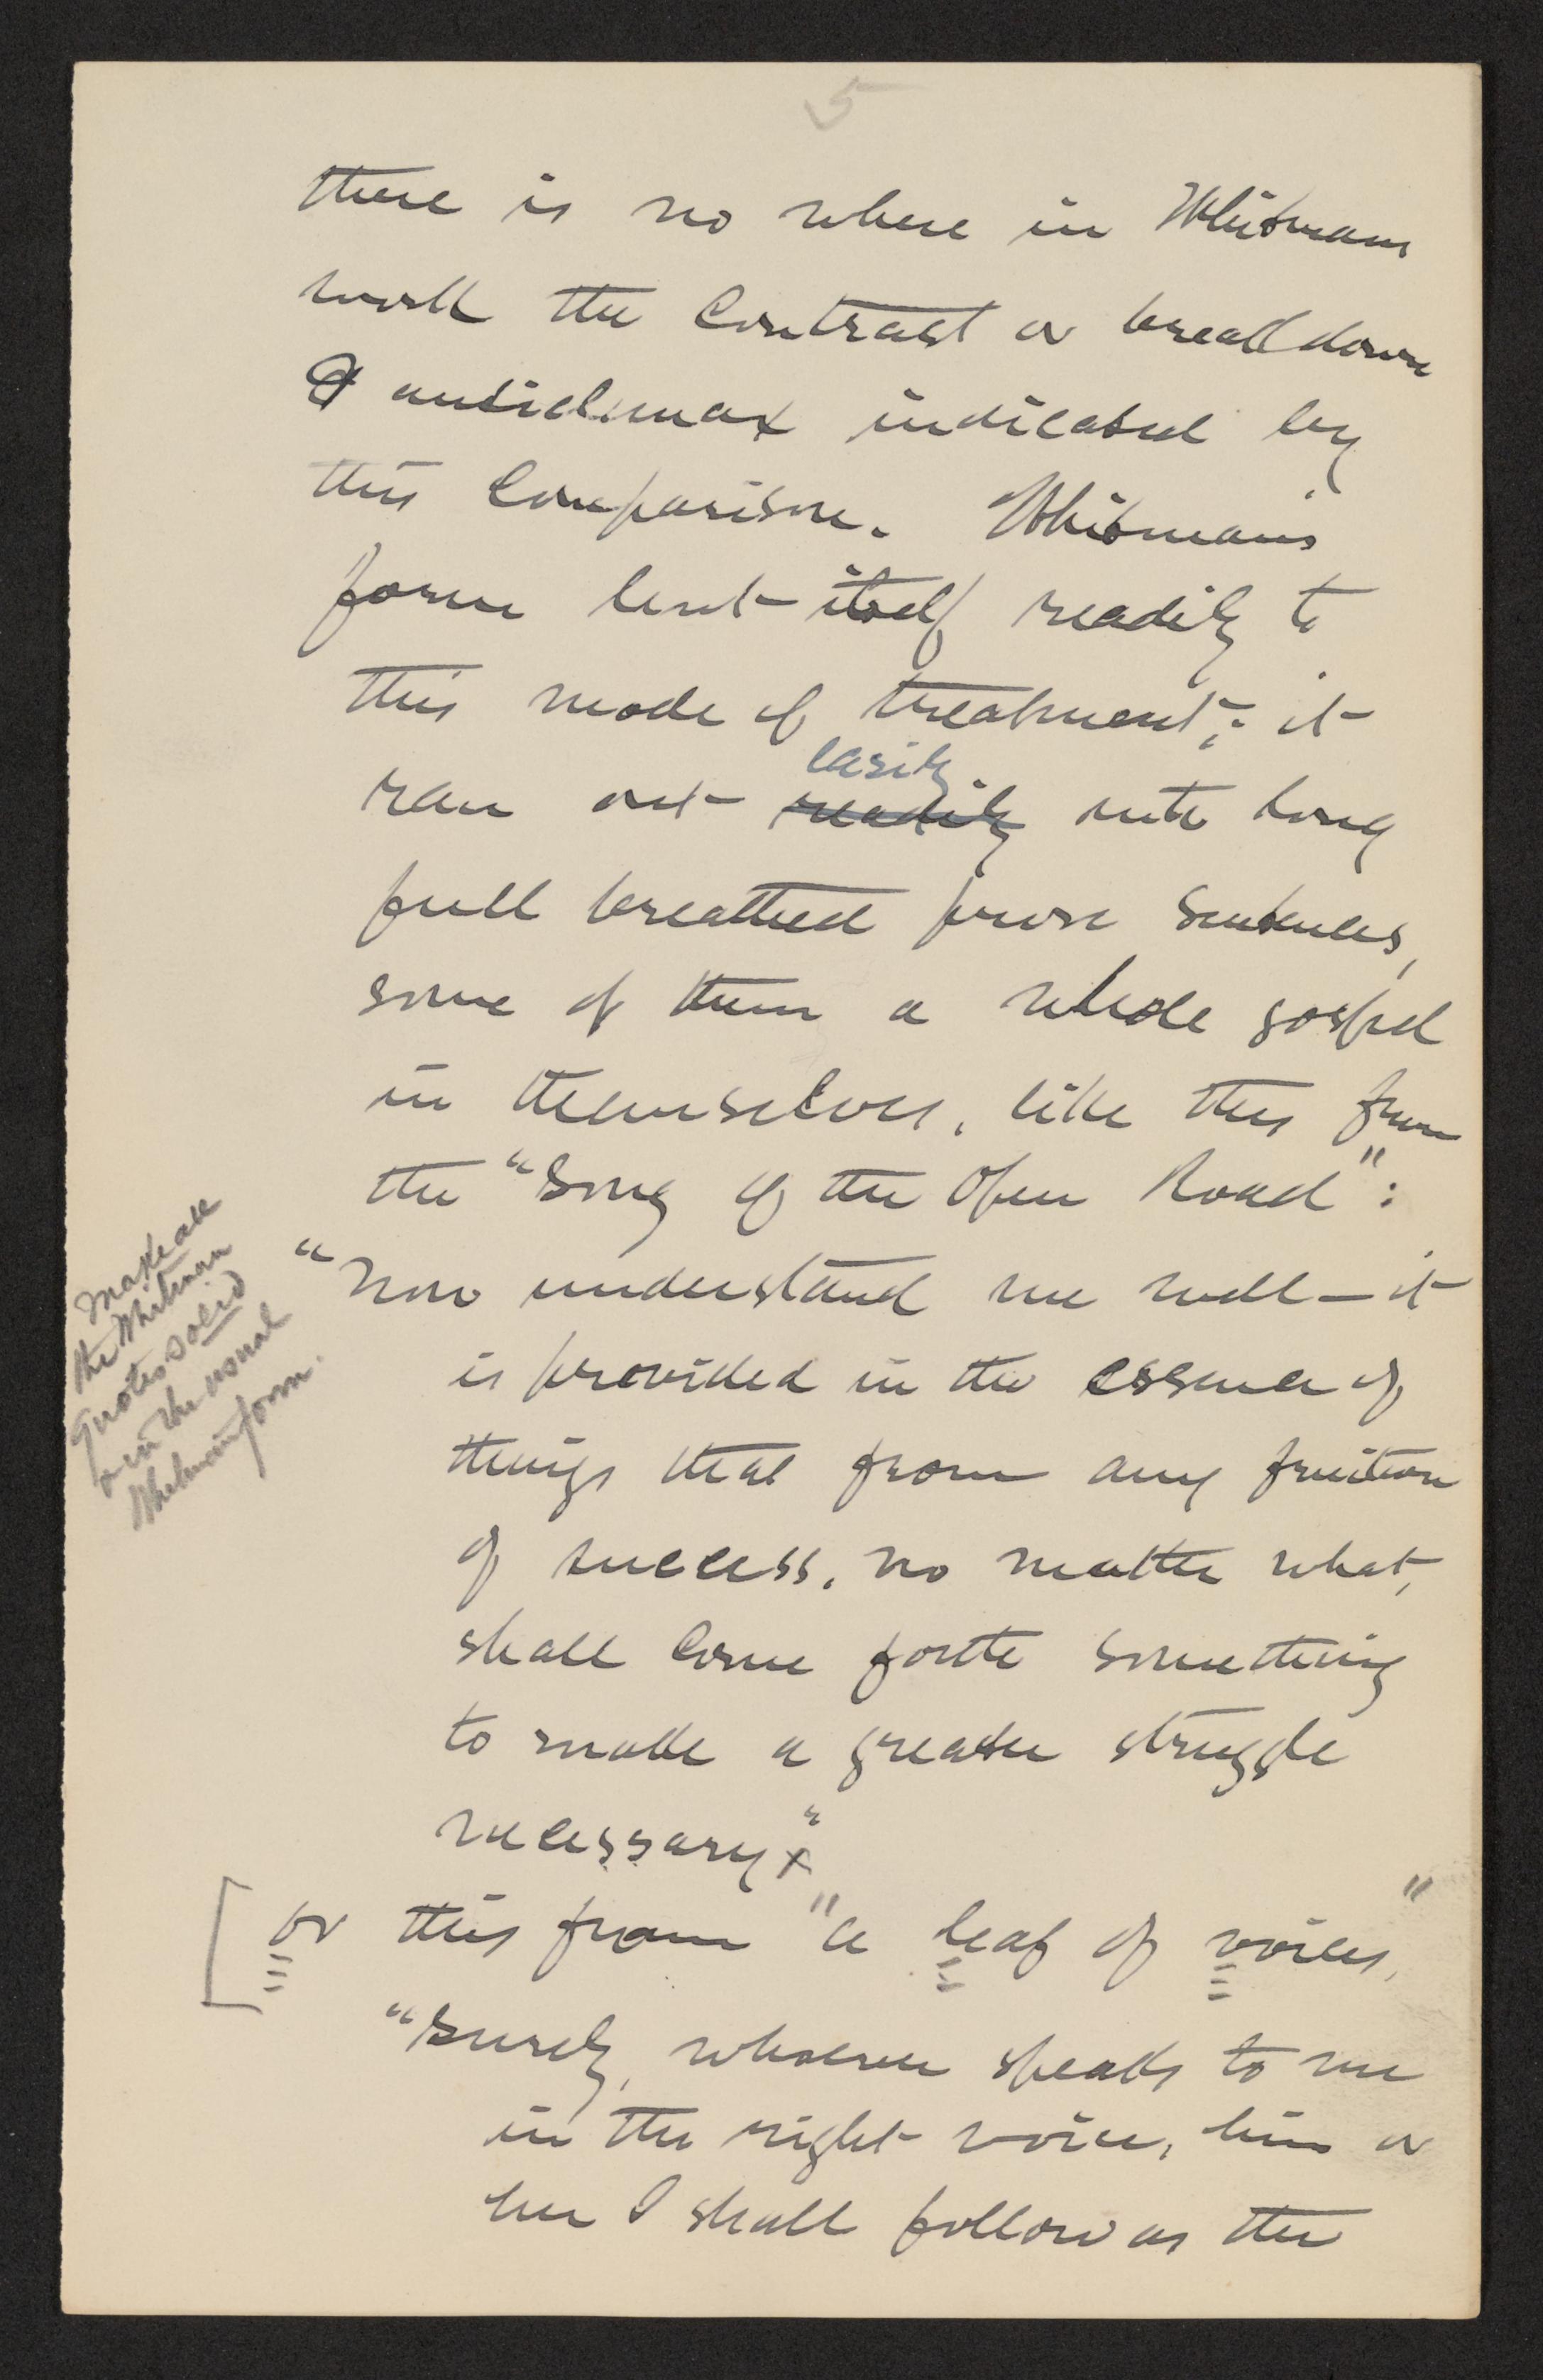 5
there is no where in Whitmans
work the Contrast or break down
& anticlimax indicated by
this Comparison. Whitman's
form lent itself readily to
this mode of treatment; it
easily
ran out readily into long
full breathed prose sentences,
some of them a whole gospel
in themselves, like this from
the "Song of the Open Road":
"Now understand me well — it
is provided in the essence of
things that from any fruition
of success, no matter what,
shall Come forth something
to make a greater struggle
necessary"
[or this from "a leaf of voices,"
"Surely, whoever speaks to me
in the right voice, him or
her I shall follow as the
Make all
the Whitman
quotes solid
or in the usual
Whitman form.